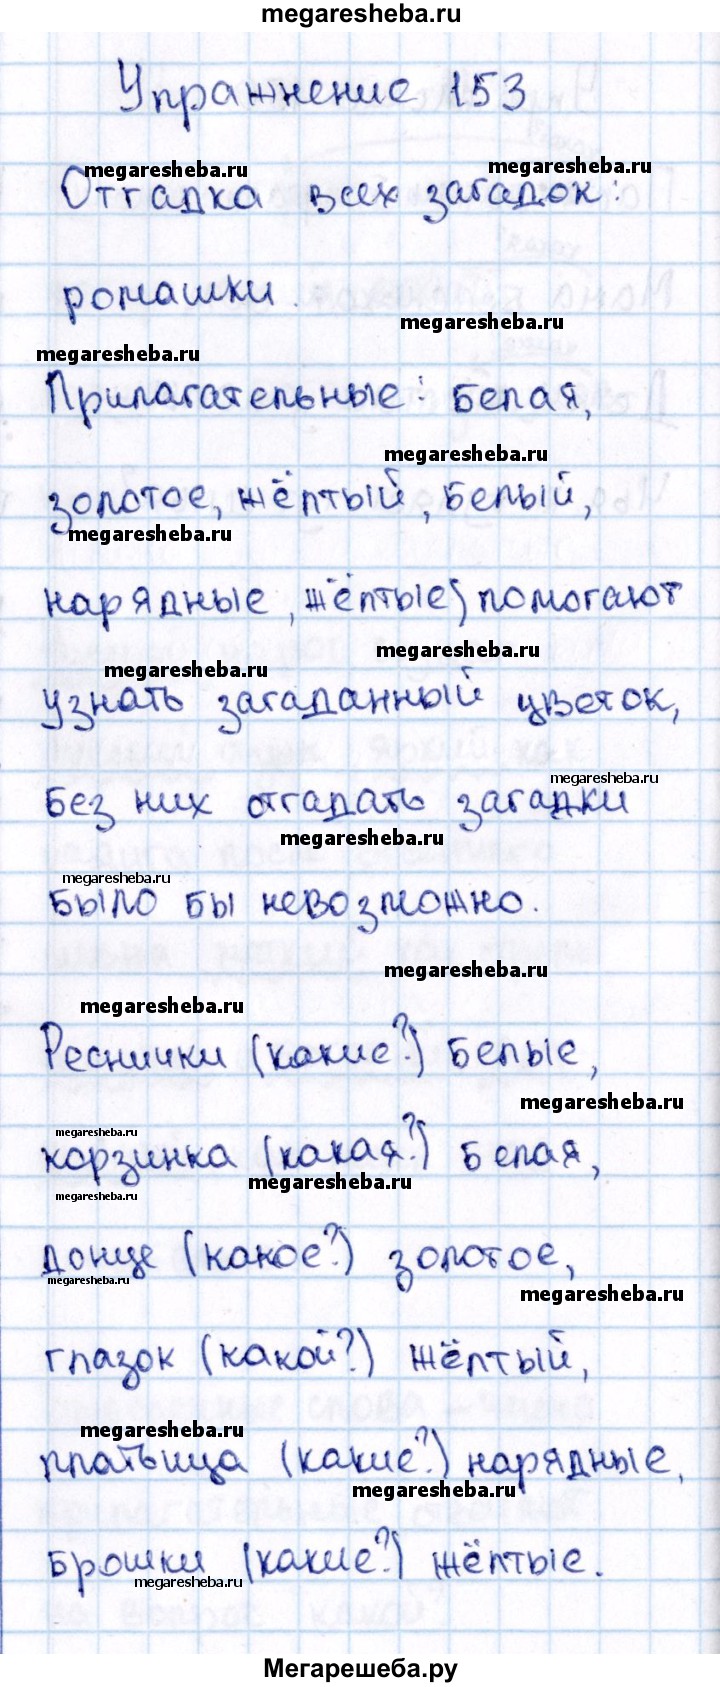 megaresheba.ru
Упражнение 153
megaresheba.ru
megaresheba.ru
Отгадка всех загадок:
ромашки.
megaresheba.ru
megaresheba.ru
Прилагательные: белая,
megaresheba.ru
золотое, жёлтый, белый,
megaresheba.ru
нарядные, жёлтые) помогают
megaresheba.ru
megaresheba.ru
узнать загаданный цветок,
megaresheba.ru
без них отгадать загадки
megaresheba.ru
megaresheba.ru
было бы невозможно.
megaresheba.ru
megaresheba.ru
Реснички (какие?) белые,
megaresheba.ru
megaresheba.ru
корзинка (какая?) белая,
megaresheba.ru
megaresheba.ru
донце (какое?) золотое,
megaresheba.ru
megaresheba.ru
глазок (какой?) жёлтый,
megaresheba.ru
платьица (какие?) нарядные,
megaresheba.ru
брошки (какие?) жёлтые.
megaresheba.ru
Мегарешеба.ру